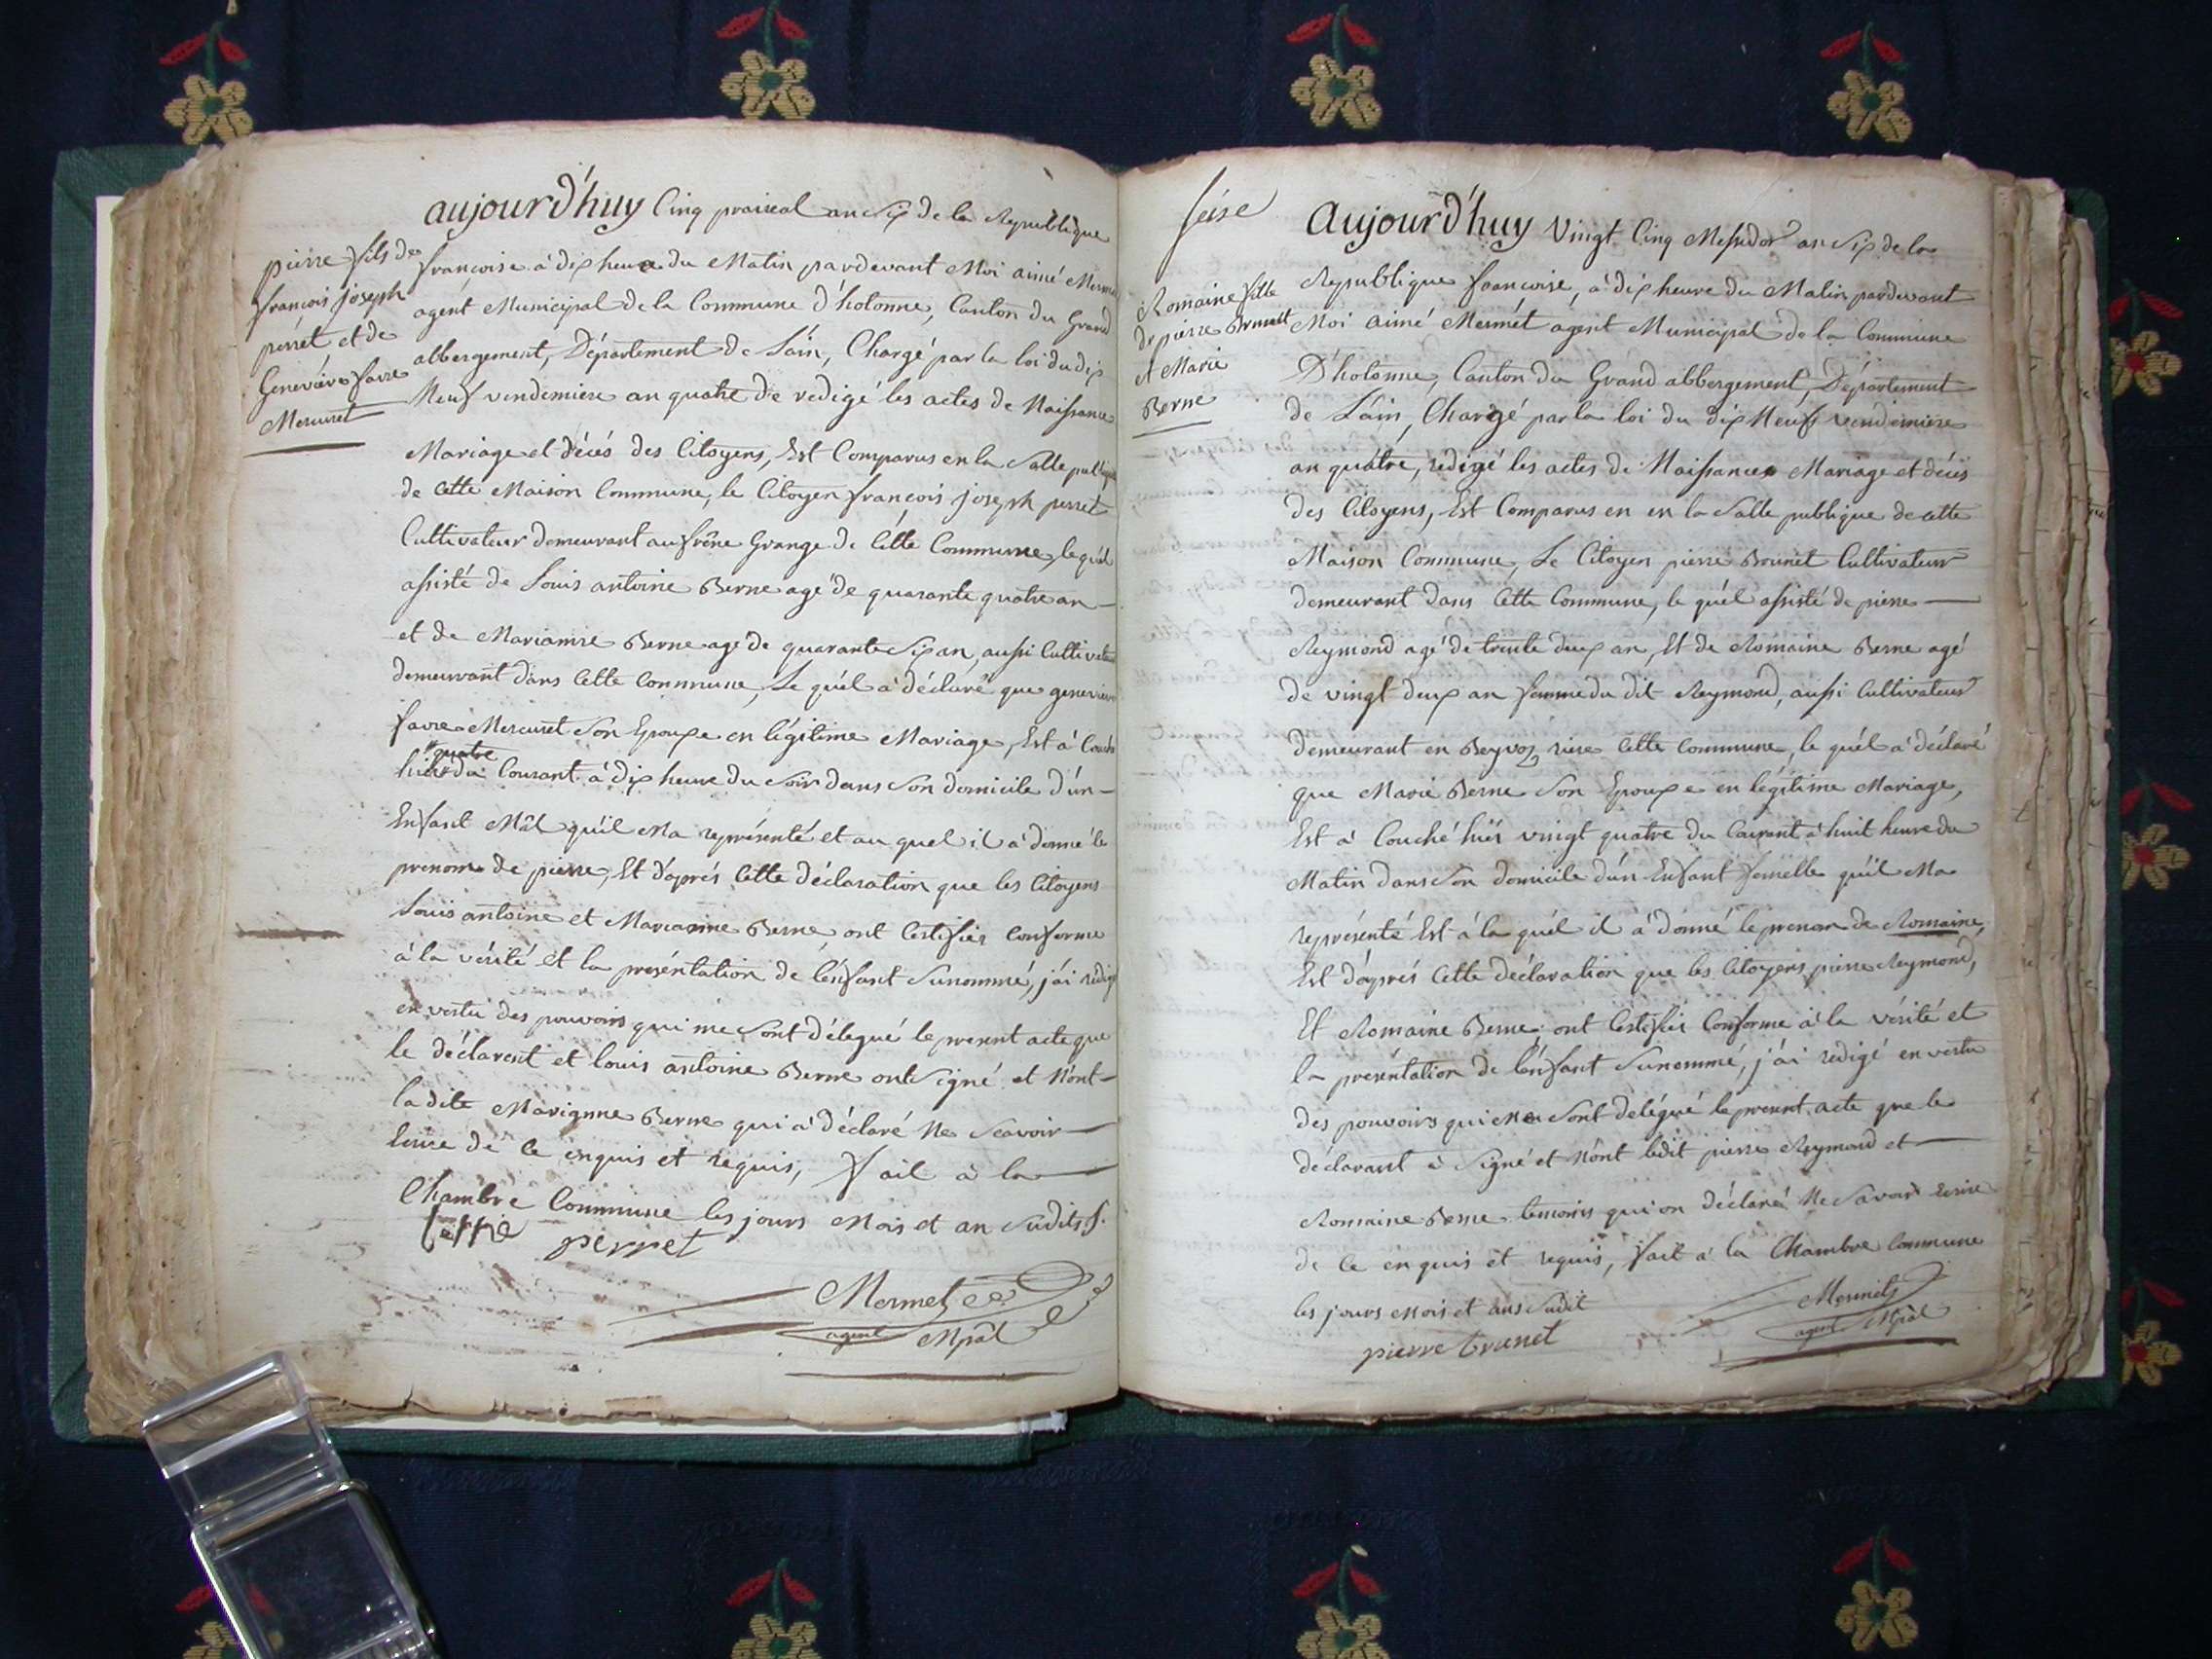 pierre fils de
françois joseph
perrét et de
Geneviève favre
Mercuret
aujourd'huy Cinq prairéal an Six de la Republique
françoise à dix heure du Matin pardevant Moi aimé Mermet
agént Municipal de la Commune d'hotonne, Canton du Grand
abbergement, Département de L'ain, Chargé par la loi du dix
Neuf vendemiere an quatre de redigé les actes de Naissance
Mariage et décés des Citoyens, Est Comparus en la Salle publique
de cette Maison Commune, le Citoyen françois joseph perret
Cultivateur demeurant au frêne Grange de Cette Commune, le quél
assisté de Louis antoine Berne agé de quarante quatre an
et de Marianne Berne agé de quarante Six an, aussi Cultivateur
demeurant dans Cette Commune, Le quél à déclaré que genevieve
favre Mercuret Son Epouxe en légitime Mariage, Est à Couché
quatre
hier du Courant à dix heure du Soir dans Son domicile d'ún
Enfant Mâl qu'il Ma représenté et au quel il à donné le
prenom de pierre, Et d'aprés Cette déclaration que les Citoyens
Louis antoine et Marianne Berne, ont Certifiér Conforme
à la vérité et la preséntation de l'énfant Sunommé, j'ái redigé
en vertu des pouvoirs qui me Sont délegué le present acte que
le déclarent et louis antoine Berne ont Signé et Nont
la dite Marianne Berne qui à déclaré Ne Scavoir
Ecrire de Ce enquis et requis, fait à la
Chambre Commune les jours Mois et an Sudits f.
berne perret
Mermet
agent Mpâl
seise
Romaine fille
de pierre Brunét
et Marie
Berne
Aujourd'huy Vingt Cinq Messidor an Six de la
Republique françoise, à dix heure du Matin pardevant
Moi aimé Mermét agent Municipal de la Commune
D'hotonne, Canton du Grand abbergement, Département
de L'ain, Chargé par la loi du dix Neuf vendemiere
an quatre, rédigé les actes de Naissance Mariage et décés
des Citoyens, Est Comparus en en la Salle publique de cette
Maison Commune, Le Citoyen pierre Brunét Cultivateur
demeurant dans Cette Commune, le quél assisté de pierre
Reymond agé de trente deux an, Et de Romaine Berne agé
de vingt deux an femme du dit Reymond, aussi Cultivateur
demeurant en Beyvoz riere Cette Commune, le quél à déclaré
que Marie Berne Son Epouxe en légitime Mariage,
Est à Couché hiér vingt quatre du Courant à huit heure du
Matin dans Son domicile d'ún Enfant femelle qu'il Ma
représenté Est à la quél il à donné le prenom de Romaine,
Est d'aprés Cette déclaration que les Citoyens pierre Reymond,
Et Romaine Berne, ont Certifiér Conforme à la vérité et
la preséntation de l'énfant Sunommé, j'ái redigé en vertu
des pouvoirs qui Me Sont delégué le present acte que le
déclarant à Signé et Nont ledit pierre Reymond et
Romaine Berne temoins qui on déclaré Ne Savoir Ecrire
de Ce enquis et requis, fait à la Chambre Commune
les jours Mois et ans Sudit
pierre brunet
Mermet
agent Mpâl